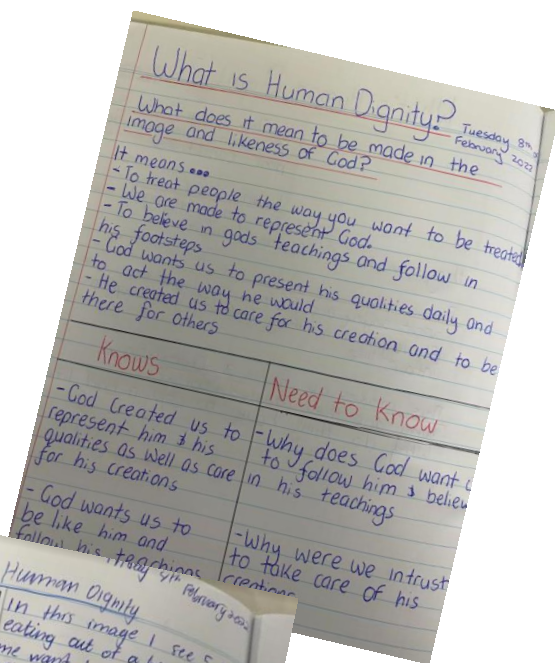 What is Human Dignity?
Tuesday 8th
February 2022
What does it mean to be made in the
image and likeness of God?
It means...
- To treat people the way you want to be treated
- We are made to represent God.
- To believe in gods teachings and follow in
his footsteps
- God wants us to present his qualities daily and
to act the way he would
- He created us to care for his creation and to be
there for others
Knows
- God created us to
represent him & his
qualities as well as care
for his creations
- God wants us to
be like him and
follow his teachings
Need to Know
- Why does God want
to follow him & believ
in his teachings
- Why were we intrust
to take care of his
creations
Human Dignity
February
In this image I see
eating out of a
me want